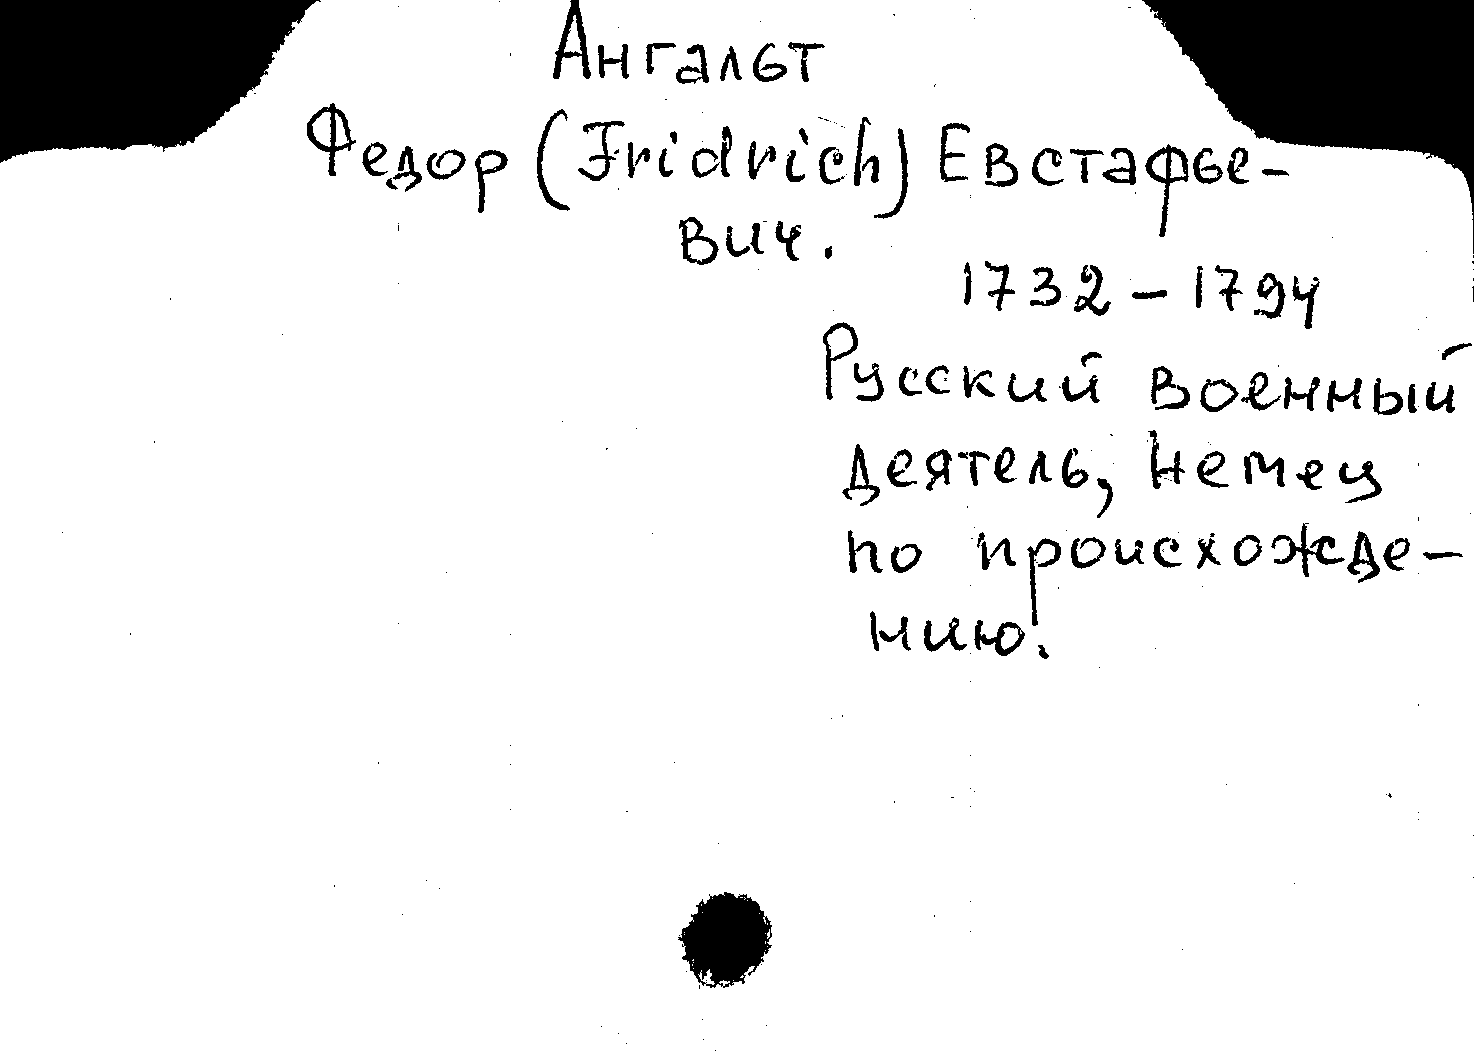 Ангальт
Федор (Fridrich) Евстафье-
вич.
1732 – 1794
Русский военный
деятель, немец
по происхожде-
нию.